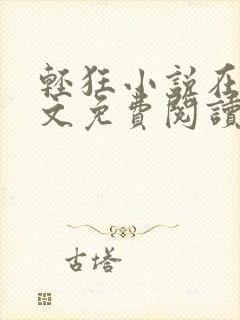 輕狂小說在
文免費閱讀
古塔